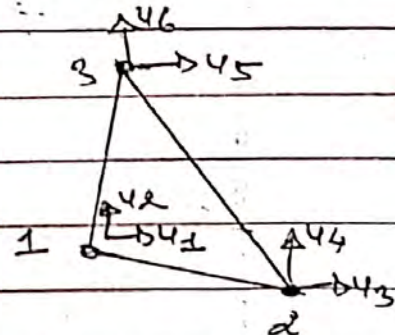 u6
3 u5
u2
1 u1
u4
u3
2